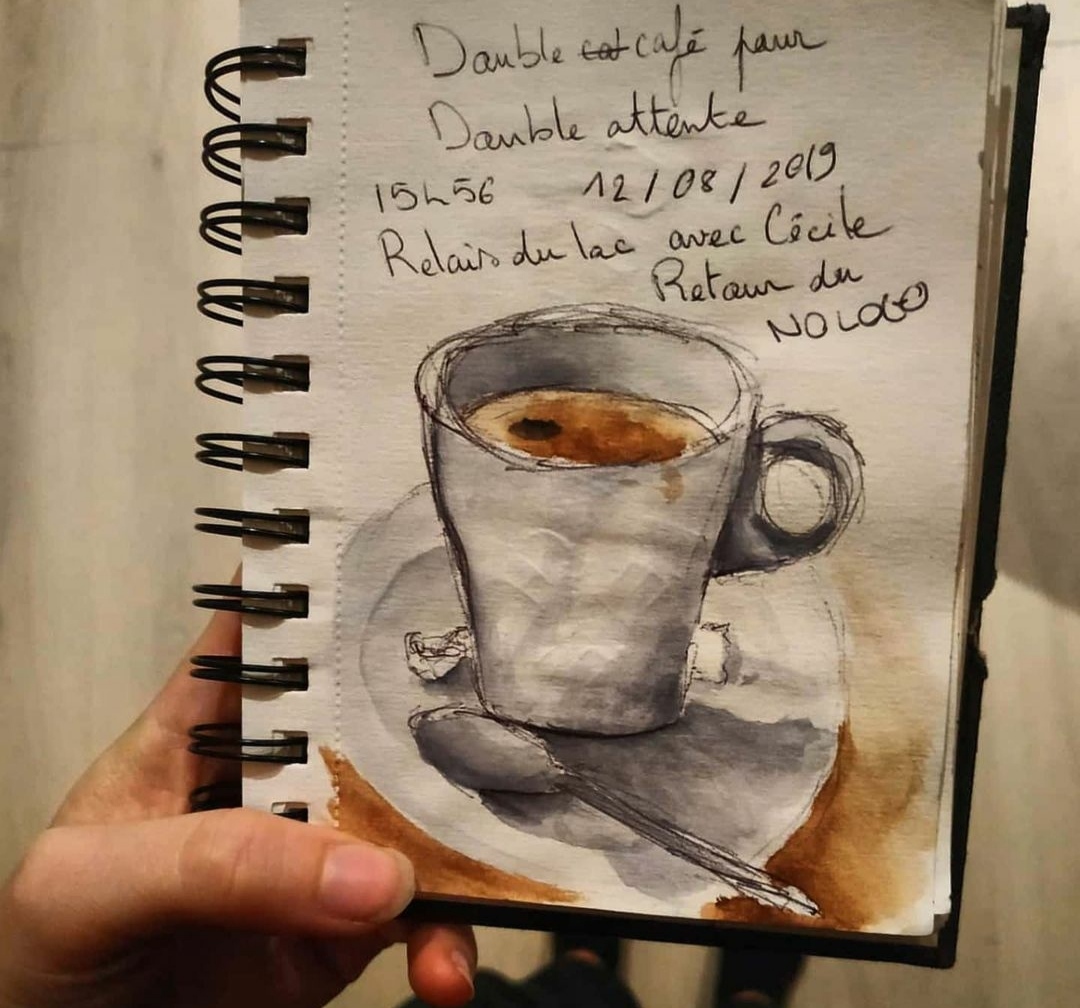 Double cat café pour
Double attente
15h56 12/08/2019
Relais du lac avec Cécile
Retour du
NOLOGO